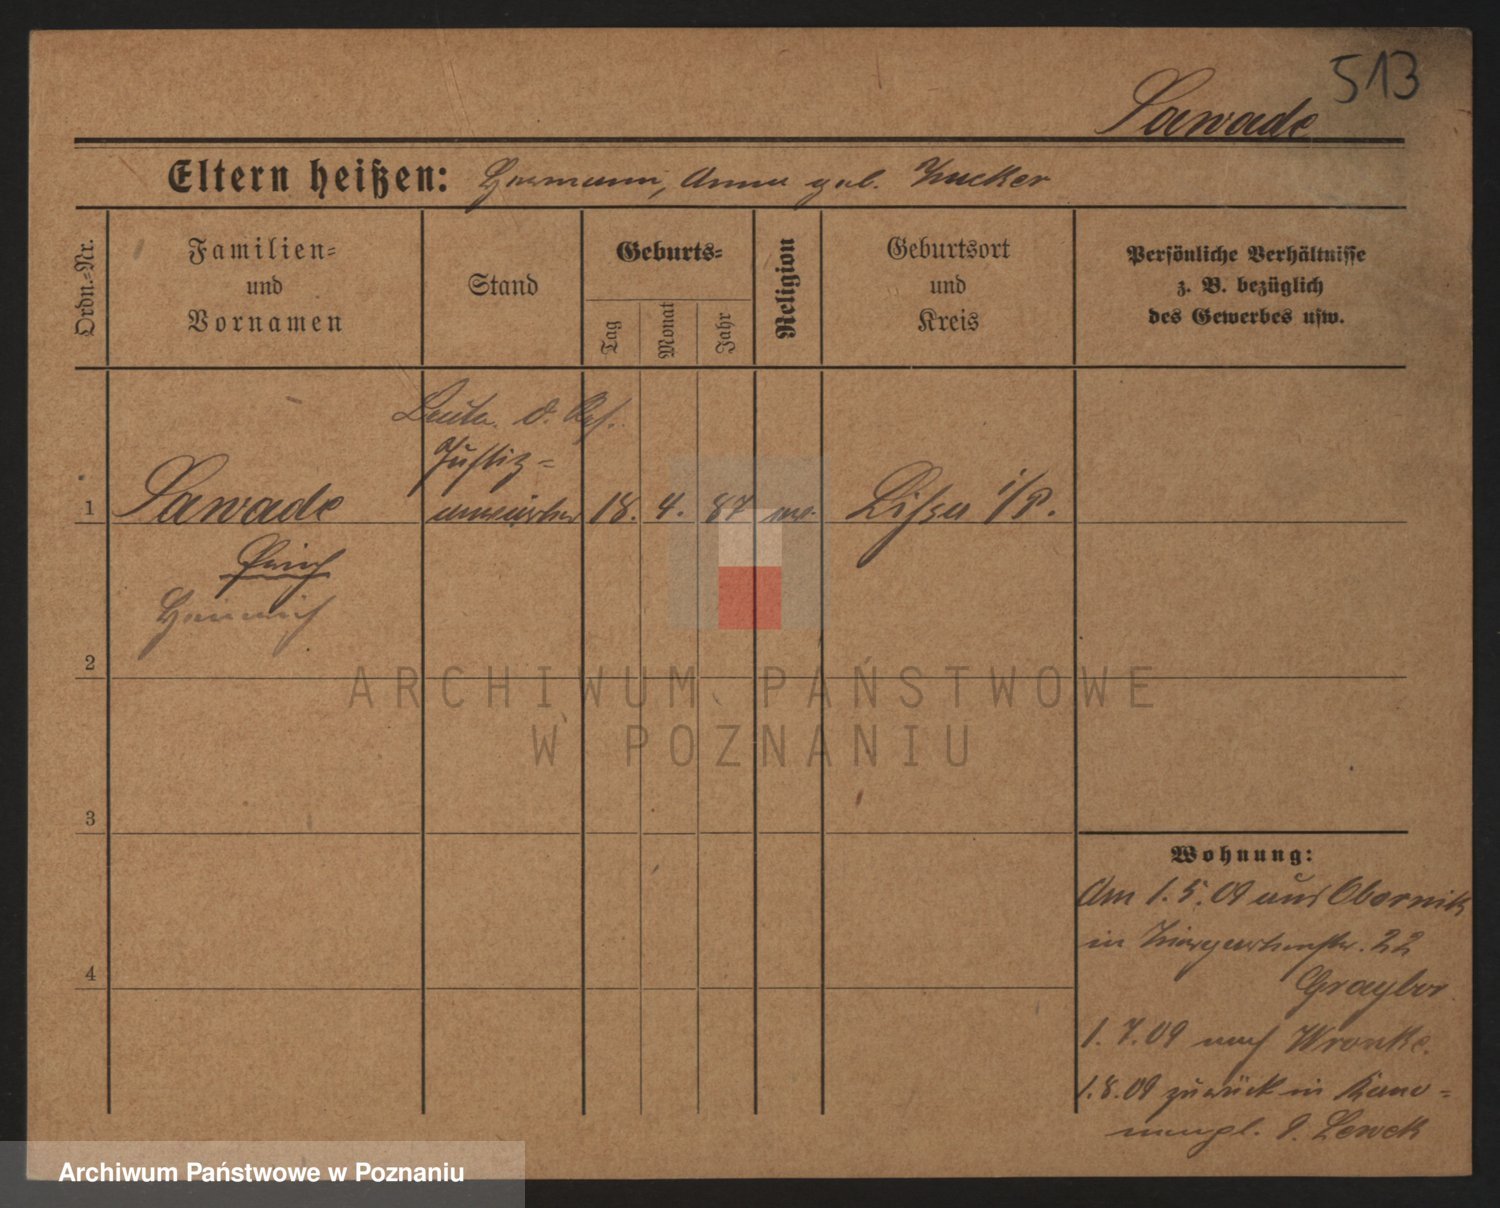 513
Sawade
Eltern heißen: Hermann, Anna geb. Zucker
Ordn.-Nr.
Familien- und Vornamen
Stand
Geburts-
Tag
Monat
Jahr
Religion
Geburtsort und Kreis
Persönliche Verhältnisse
z. B. bezüglich
des Gewerbes usw.
Leutn. d. Res.
Justiz-
1 Sawade anwärter 18. 4. 87 Lissa i/P.
Erich
Heinrich
2
ARCHIWUM PAŃSTWOWE
W POZNANIU
3
Wohnung:
Am 1.5.09 aus Obornik
in 22
4
1.7.09 nach Wronke.
1.8.09 zurück in
Archiwum Państwowe w Poznaniu